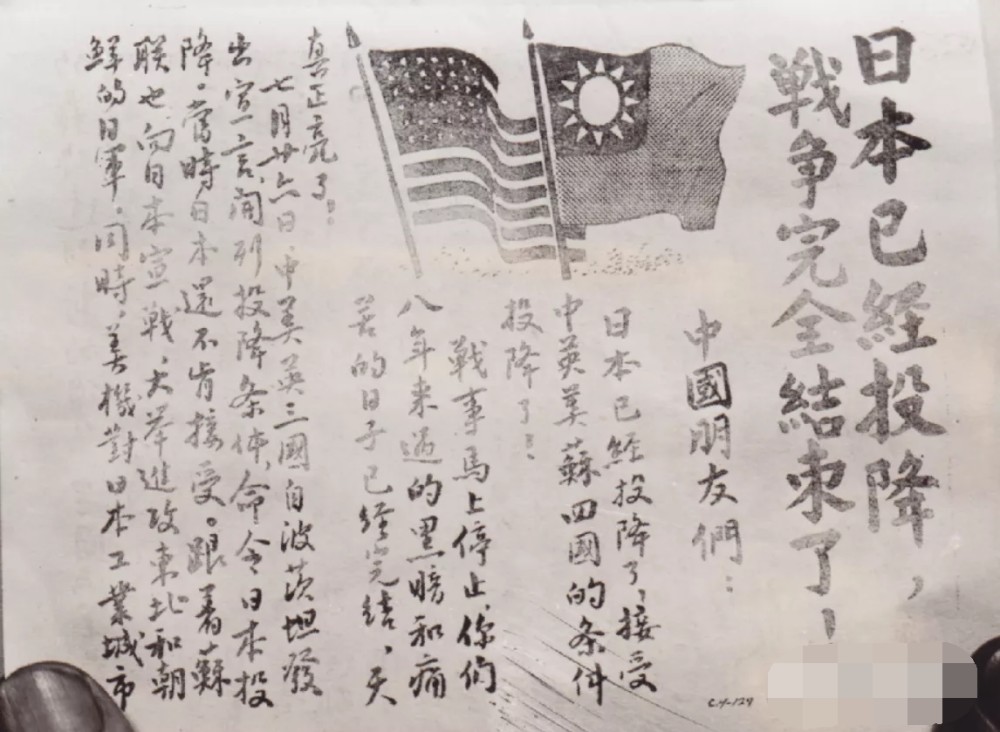 日本已経投降，
戦争完全結束了！
中國朋友們：
日本已经投降了，接受
中英美蘇四國的条件
投降了！
戦事馬上停止。你们
八年来過的黑暗和痛
苦的日子已经完结，天
真正亮了！
七月廿六日中美英三國自波茨坦發
出宣言，開列投降条件，命令日本投
降。當時日本還不肯接受。跟着蘇
联也向日本宣戰，大举進攻東北和朝
鮮的日軍。同時，美機對日本工業城市
C.H-129